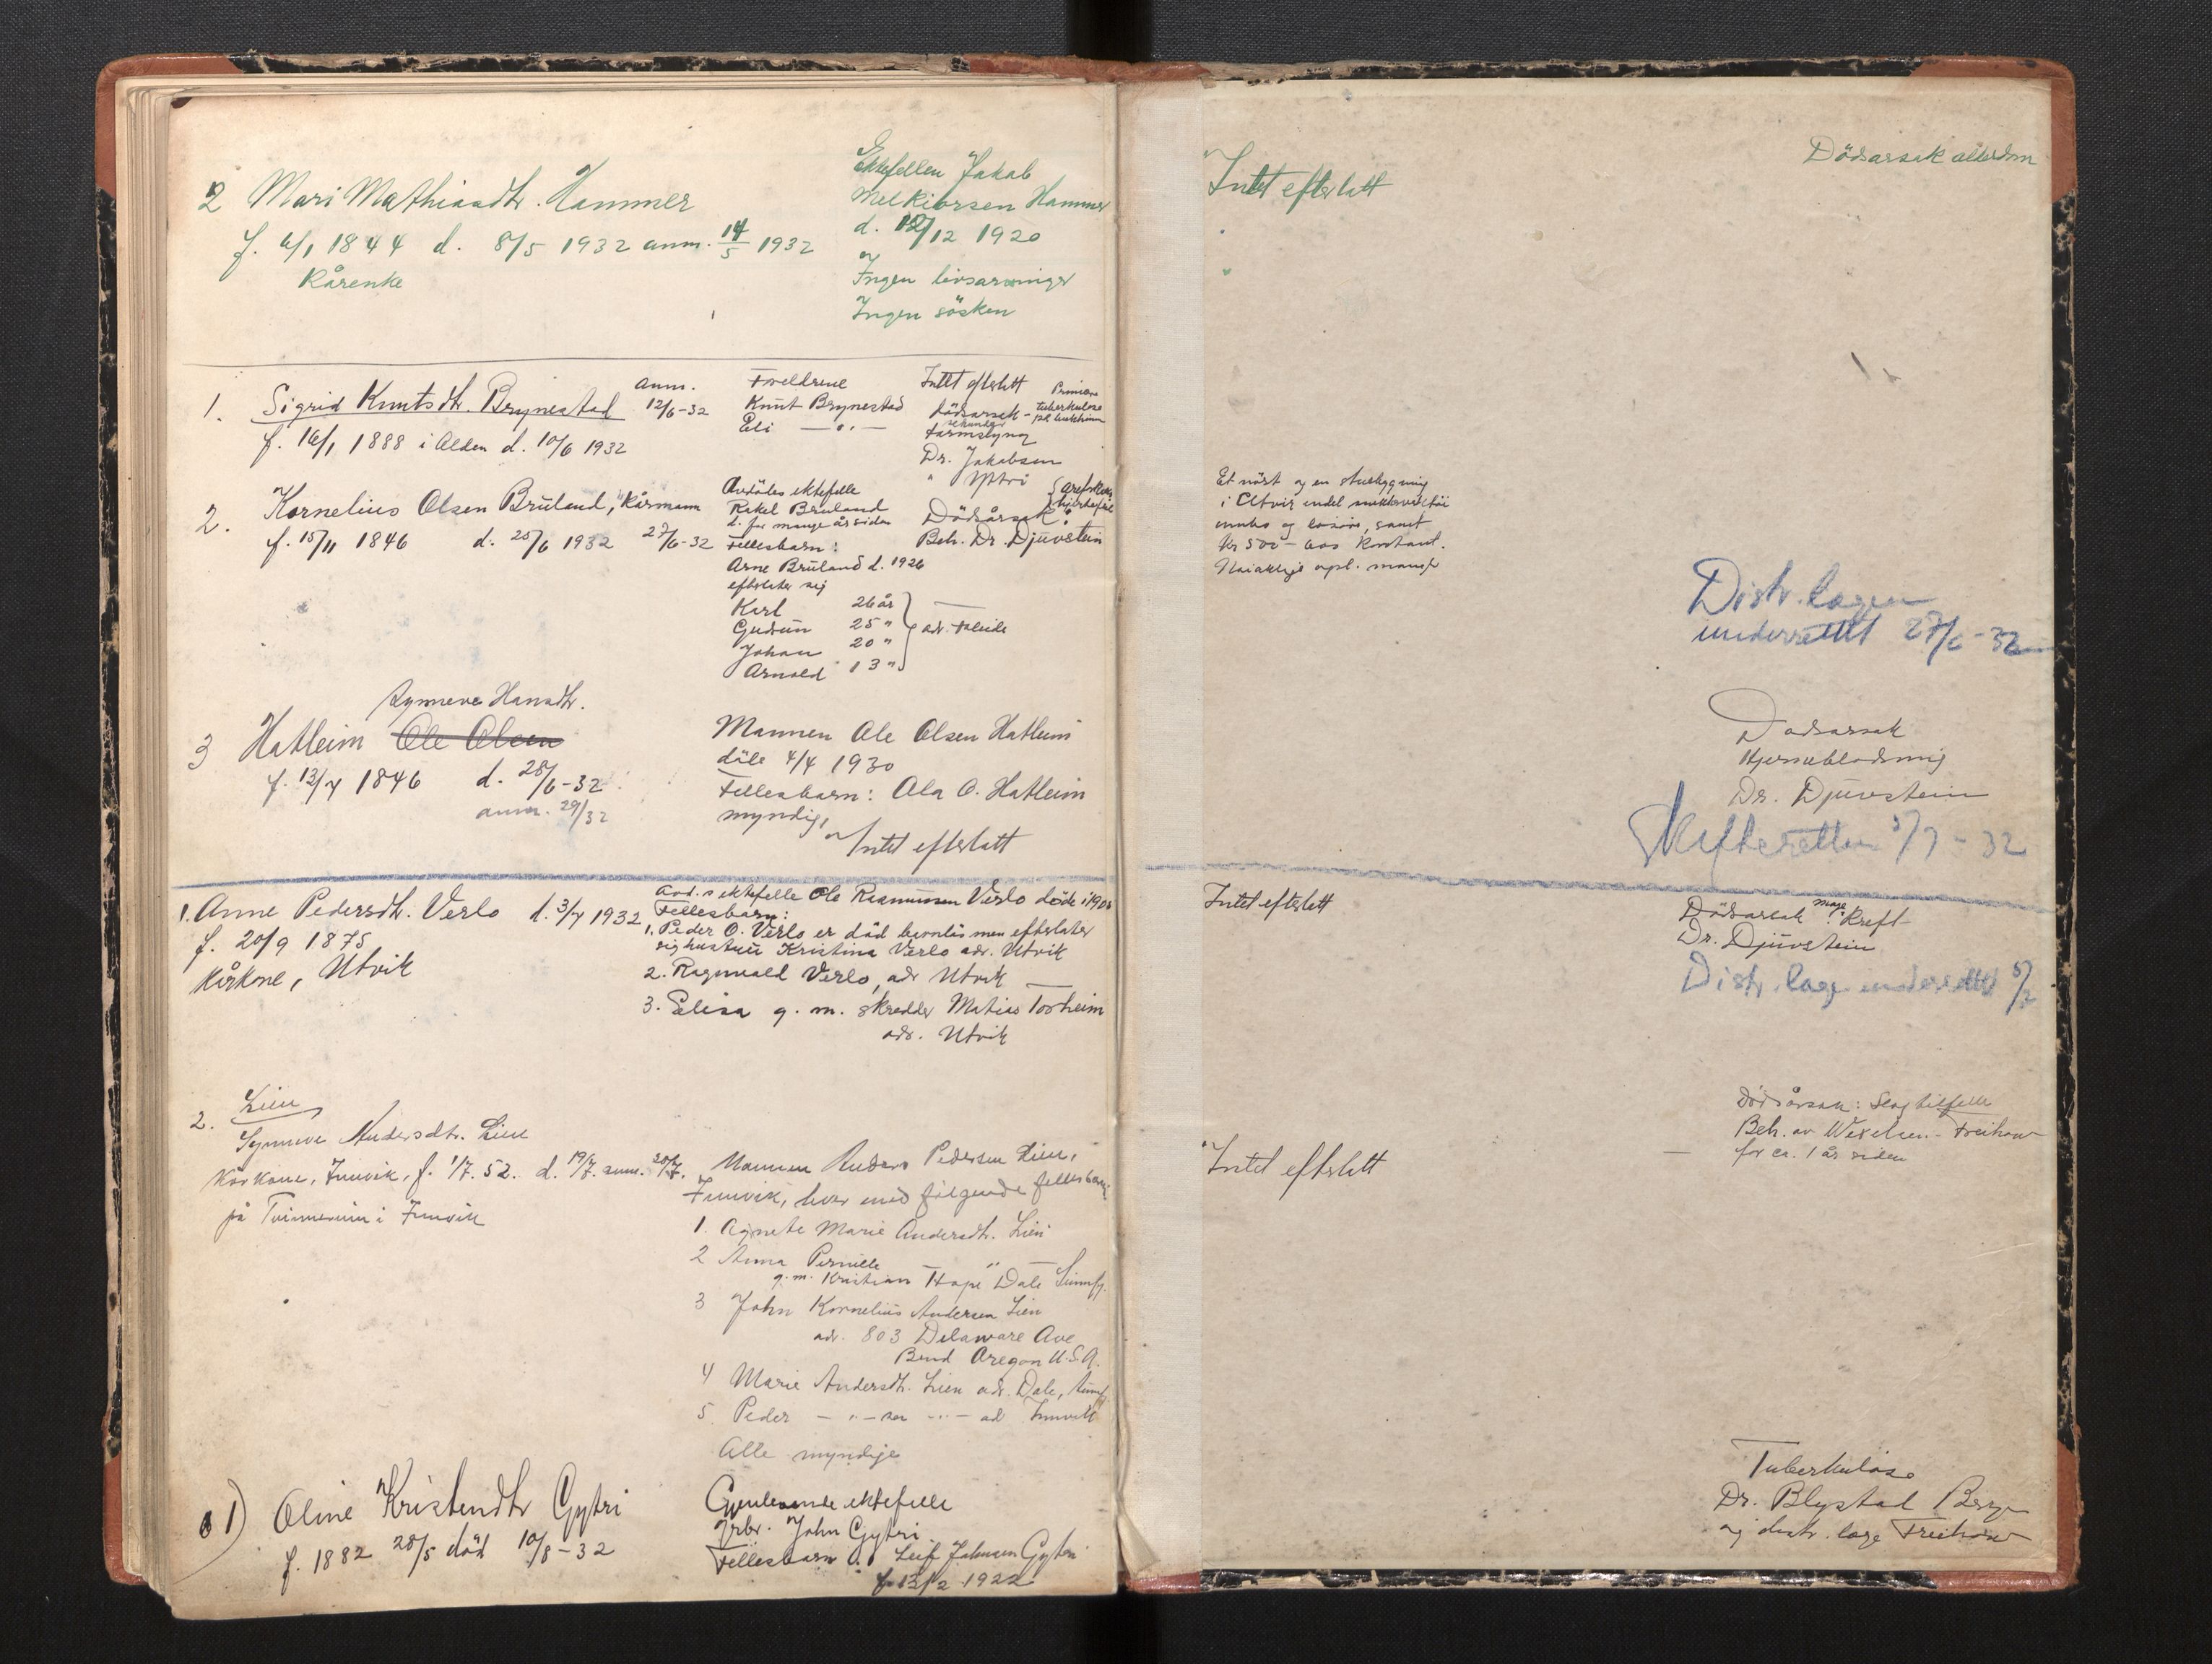 2 Mari Mathiasdtr. Hammer
f. 6/1 1844 d. 8/5 1932 anm. 14/5 1932
Kårenke
Ektefellen Jakob
Melkiorsen Hammer
d. 12/12 1920
og
Ingen livsarvinger
Ingen søsken
Intet efterlatt
Dödsarsak alderdom
1. Sigrid Knutsdtr. Brynestad
f. 16/1 1888 i Alden d. 10/6 1932
anm.
12/6-32
Foreldrene
Knut Brynestad
Eli —"—
Intet efterlatt
Dödsarsak - Primær
tuberkulose
sekundær
Dr. Jakobsen
" Ytri
2. Kornelius Olsen Bruland, Kårmann
f. 15/11 1846 d. 25/6 1932 27/6-32
Avdödes ektefelle
Rakel Bruland
d. for mange år siden
Fellesbarn:
Arne Bruland d. 1926
efterlater sig
Karl 26 år
Gudrun 25 "
Johan 20 "
Arnold 13 "
adr. Heide
Dödsårsak:
Beh. Dr. Djuvstein
Et nöst og en
i Utvik endel
innbo og lösöre, samt
kr 500- kontant.
Distr. lagen
underrettet 27/6-32
Synneve Hansdtr.
3 Hatleim Ole Olsen
f. 13/7 1846 d. 28/6-32
anm. 29/32
Mannen Ole Olsen Hatleim
döde 4/4 1930
Fellesbarn: Ola O. Hatleim
myndig,
Intet efterlatt
Dødsarsak
Hjerneblödning
Dr. Djuvstein
Skifteretten 5/7-32
1. Anne Pedersdtr. Verlo d. 3/7 1932
f. 20/9 1875
Kårkone, Utvik
Avd.s ektefelle Ole Rasmussen Verlo döde i 190
Fellesbarn:
1. Peder O. Verlo er död barnlös men efterlater
sig hustru Kristina Verlo adr. Utvik
2. Ragnvald Verlo, adr Utvik
3. Elisa g. m. skredder Matias Tosheim
adr. Utvik
Intet efterlatt
Dödsarsak mave kreft
Dr. Djuvstein
Distr. lage underrettet 5/7
2. Lien
Synneve Andersdtr. Lien
Kårkone, Innvik, f. 1/7. 52. d. 19/7. anm. 20/7.
på Tvinnereim i Innvik
Mannen Anders Pedersen Lien,
Innvik, hvor med følgende fellesbarn:
1. Agnete Marie Andersdtr. Lien
2 Anna Pernille — " —
g. m. Kristian Hope Dale Sunnfj.
3 John Kornelius Andersen Lien
adr. 803 Delaware Ave
Bend Oregon U.S.A.
4 Marie Andersdtr. Lien adr. Dale, Sunnfj
5. Peder —"— sen —"— ad Innvik
Alle myndige
Intet efterlatt
Dödsårsak: Slagtilfelle
Beh. av Wexelsen - Freihow
for ca. 1 år siden
1) Oline Kristendtr Gytri
f. 1882 28/5 död 10/8-32
Gjenlevende ektefelle
grbr. John Gytri
Fellesbarn: Leif Johnsen Gytri
f. 13/2 1922
Tuberkulose
Dr. Blystad Berge
og distr. lage Freihow